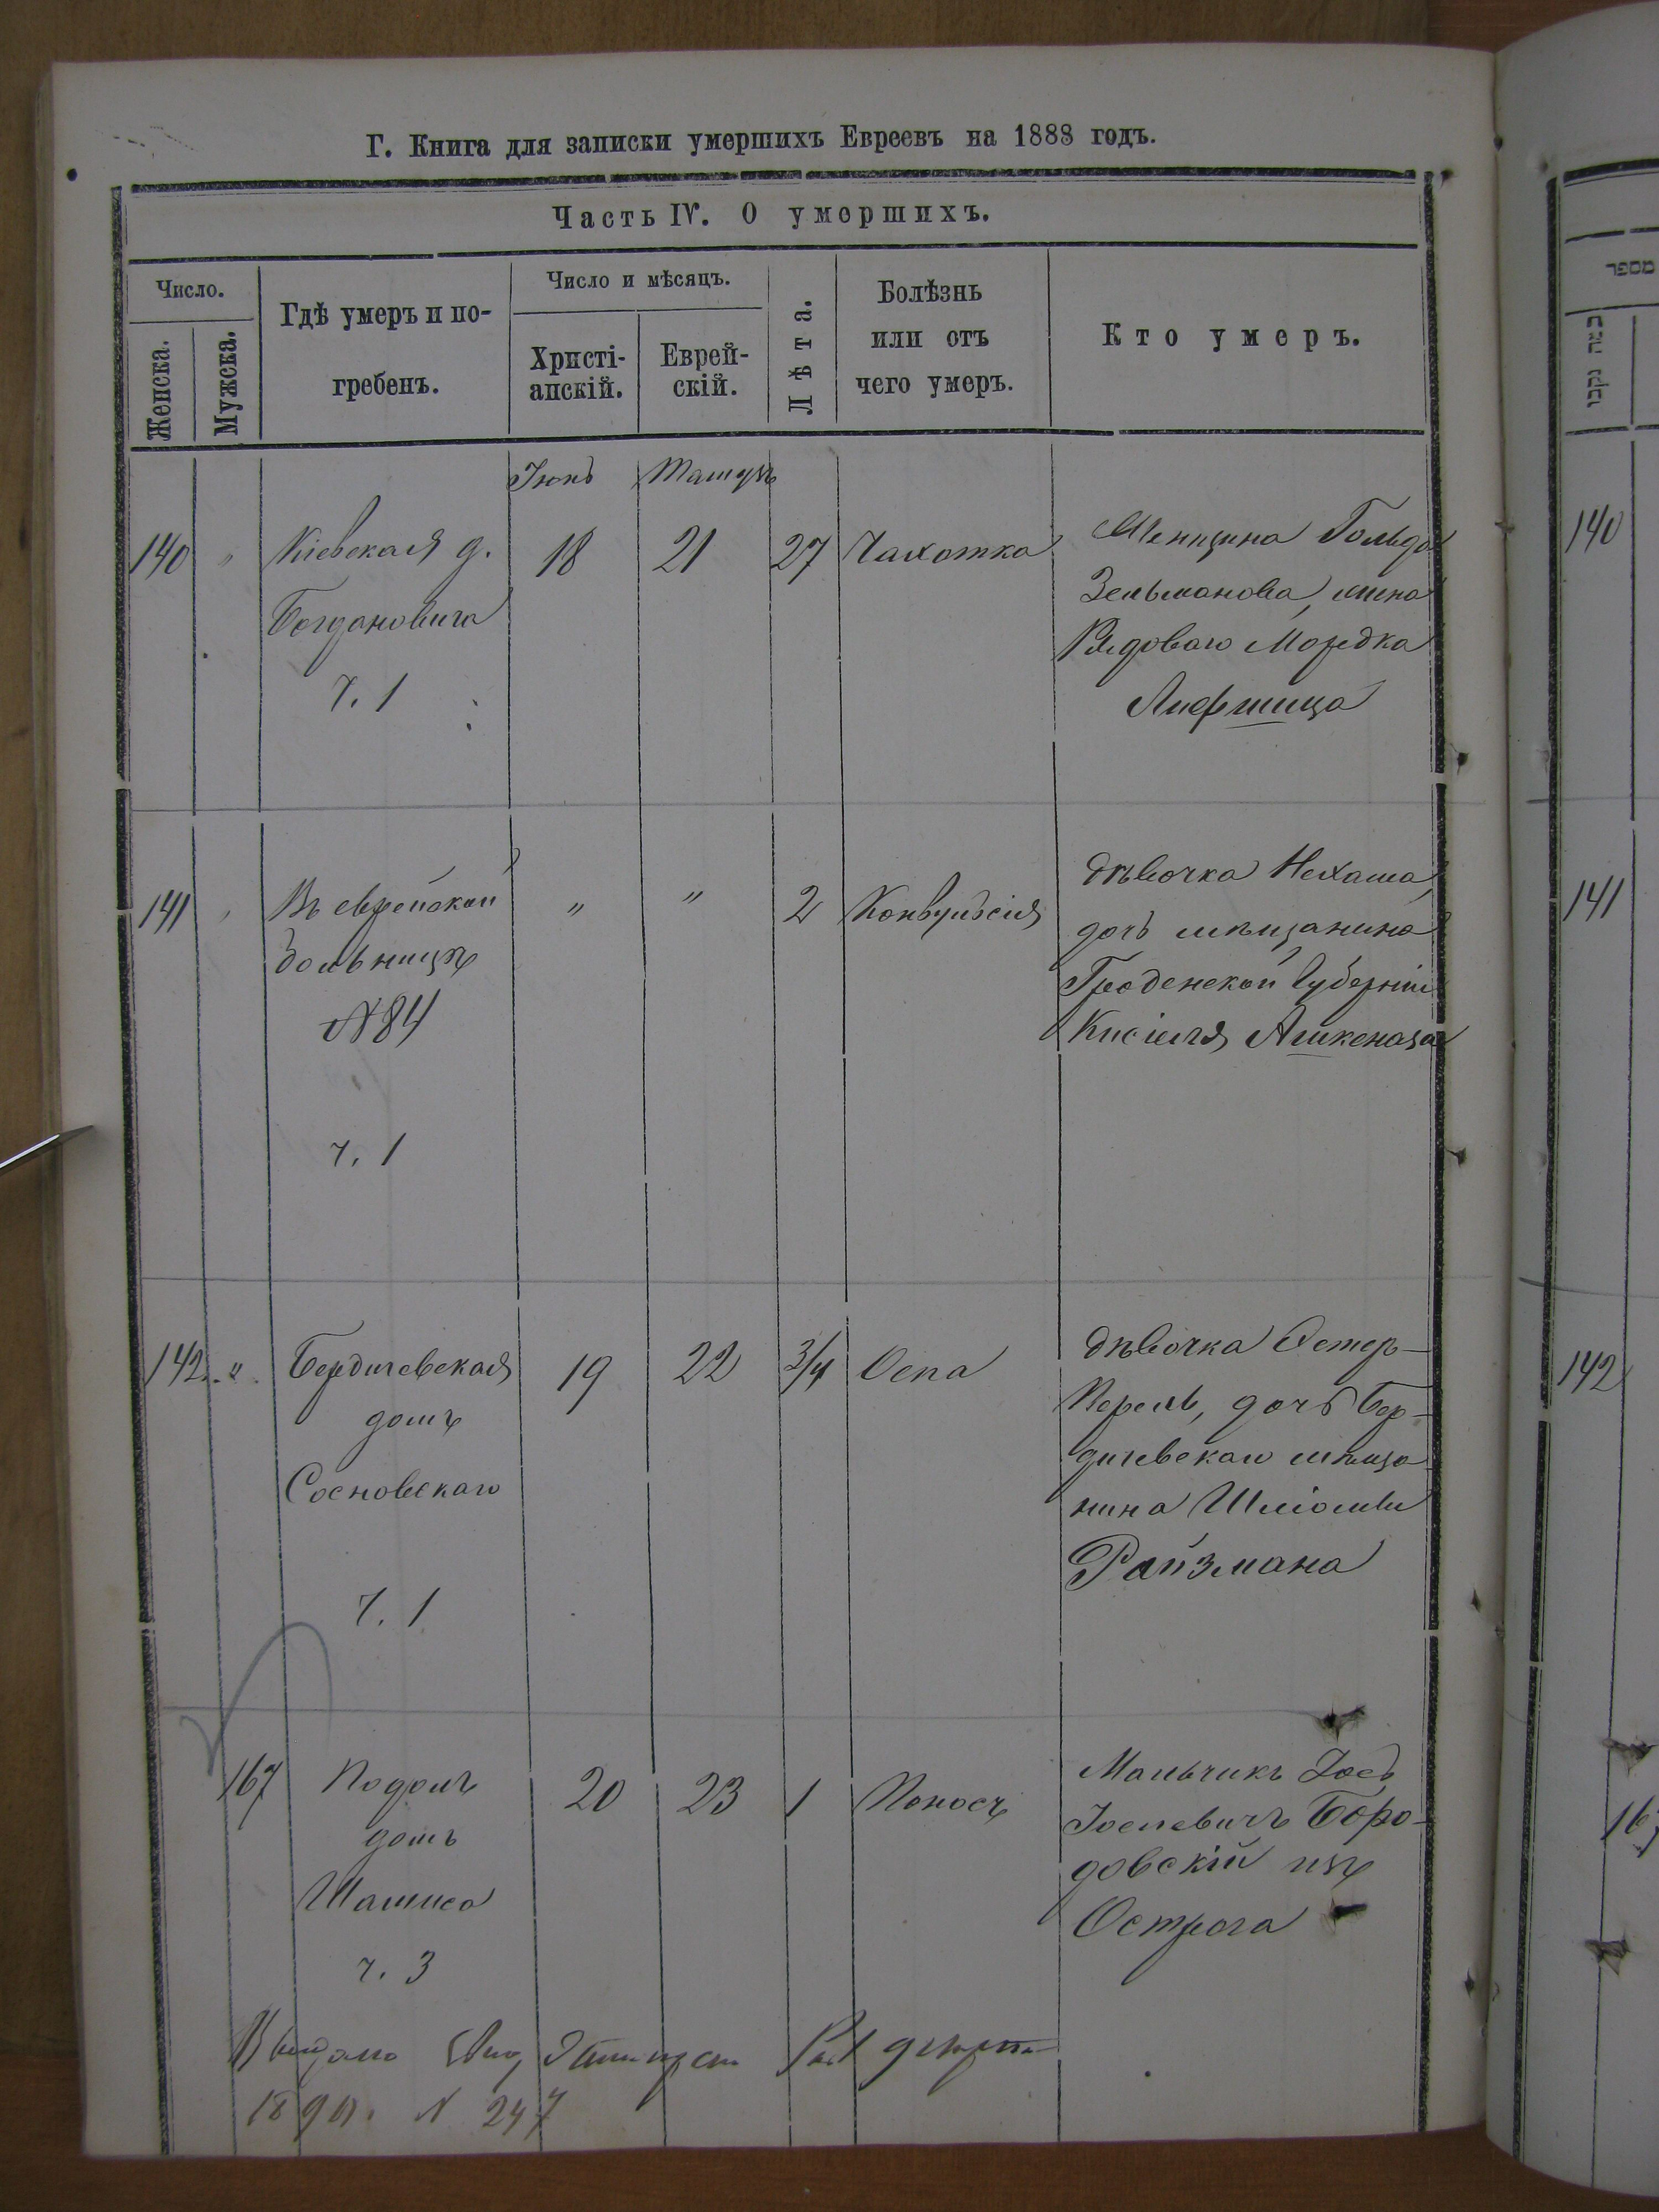 Г. Книга для записки умершихъ Евреевъ на 1888 годъ.
Часть IV. О умершихъ.
Число.
Женска.
Мужска.
Гдѣ умеръ и по-
гребенъ.
Число и мѣсяцъ.
Христі-
анскій.
Еврей-
скій.
Лѣта.
Болѣзнь
или отъ
чего умеръ.
Кто умеръ.
Іюнь Тамузъ
140 " Кіевская д.
Богдановича
ч. 1
18 21 27 Чахотка
Женщина Гольда
Зельманова, жена
Рядоваго Мордка
Лифшица
141 " Въ еврейской
больницѣ
№ 84
ч. 1
" " 2 Конвульсія
дѣвочка Нехама
дочь мѣщанина
Гродненской Губерніи
Кисіеля Ашкеназа
142 " Бердичевская
домъ
Сосновскаго
ч. 1
19 22 3/4 Оспа
дѣвочка Эстер-
Перель, дочь Бер-
дичевскаго мѣща-
нина Шліомы
Райзмана
167 Подолъ
домъ
ч. 3
20 23 1 Поносъ
Мальчикъ Іось
Іоселевичъ Боро-
довскій изъ
Острога
Выдано
189 г. № 247
מספר
נקבות
140
141
142
167